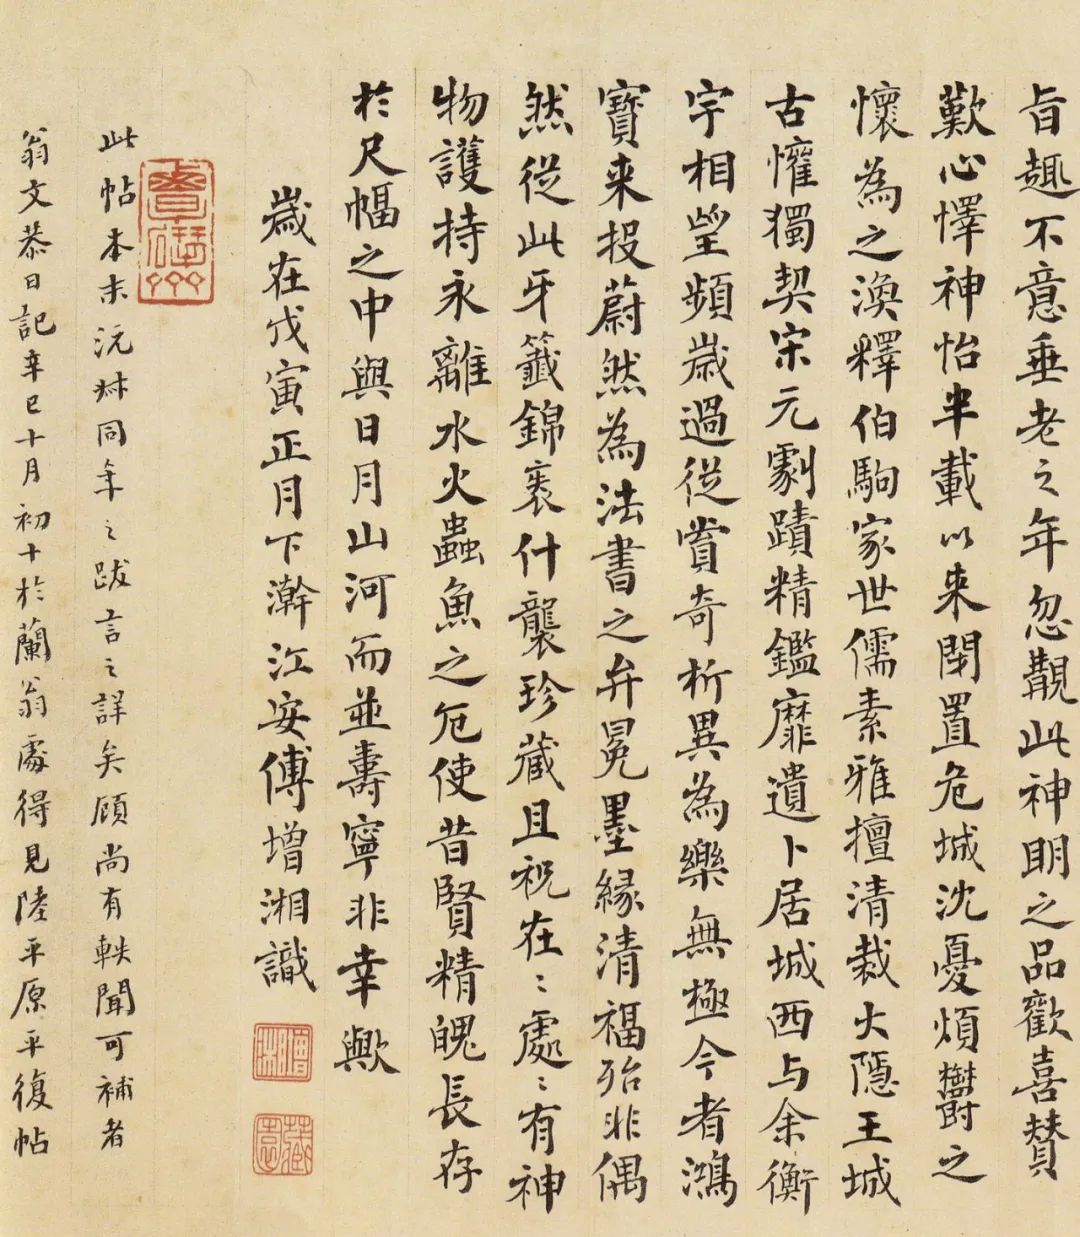 旨趣不意垂老之年忽覩此神明之品歡喜贊
歎心懌神怡半載以来閉置危城沈憂煩鬱之
懷為之渙釋伯駒家世儒素雅擅清裁大隱王城
古懽獨契宋元劇蹟精鑑靡遺卜居城西与余衡
宇相望頻歲過從賞奇析異為樂無極今者鴻
寶来投蔚然為法書之弁冕墨緣清福殆非偶
然從此牙籤錦裹什襲珍藏且祝在〻處〻有神
物護持永離水火蟲魚之厄使昔賢精魄長存
於尺幅之中與日月山河而並壽寧非幸歟
歲在戊寅正月下澣江安傅增湘識
此帖本末沅叔同年之跋言之詳矣顧尚有軼聞可補者
翁文恭日記辛巳十月初十於蘭翁處得見陸平原平復帖